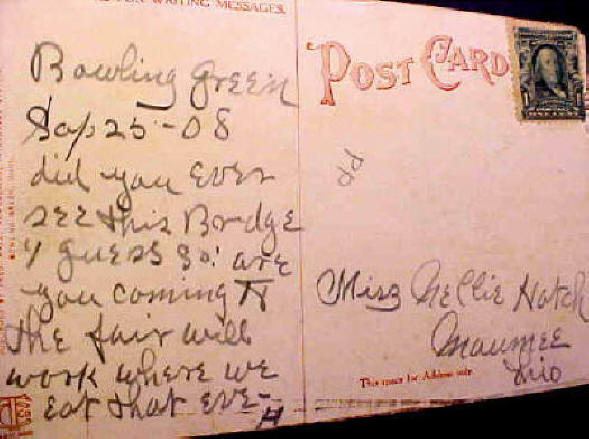 FOR WRITING MESSAGES.
Bowling Green
Sep 25-08
did you ever
see this Bordge
I guess so! are
you coming to
the fair will
work where we
eat that eve-
H
POST CARD
Miss Nellie Hatch
Maumee
Ohio
This space for Address only